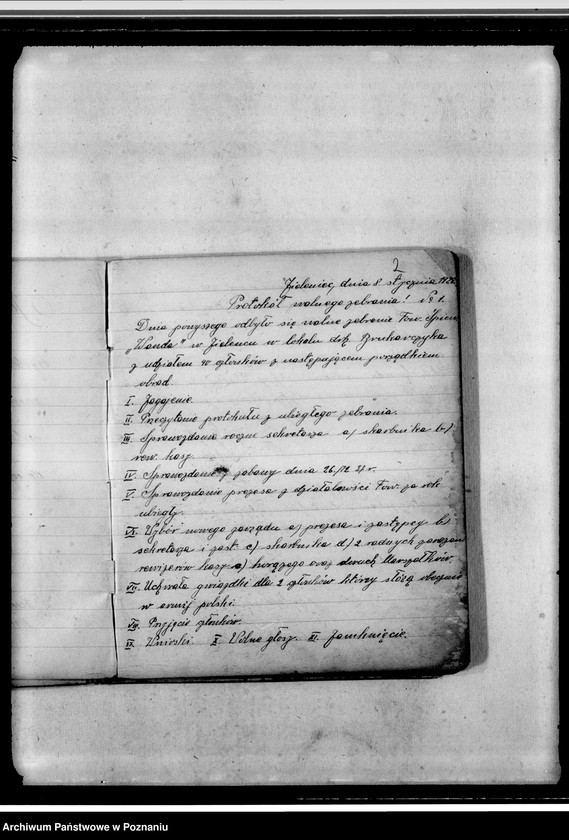 2
Zieleniec, dnia 8 stycznia
Protokół walnego zebrania! No 1.
Dnia powyszego odbyło się walne zebranie Tow. Śpiewu
„Wanda” w Zieleńcu w lokalu drh.
z udziałem 40 członków z następującem porządkiem
obrad.
I. Zagajenie.
II. Przeczytanie protokułu z ubiegłego zebrania.
III. Sprawozdanie roczne sekretarza a/ skarbnika b/
rew. kasy.
IV. Sprawozdanie z zabawy dnia 26./12. 27 r.
V. Sprawozdanie prezesa z działalności Tow. za rok
ubiegły.
VI. Wybór nowego zarządu a/ prezesa i zastępcy b/
sekretarza i zast. c/ skarbnika d/ 2 radnych zarazem
rewizorów kasy e) chorążego oraz dwuch Marszałków.
VII. Uchwała gwiazdki dla 2 członków którzy służą obecnie
w armji polski.
VIII. Przyjęcie członków.
IX. Wnioski. X. Wolne głosy. XI. Zamknięcie.
Archiwum Państwowe w Poznaniu